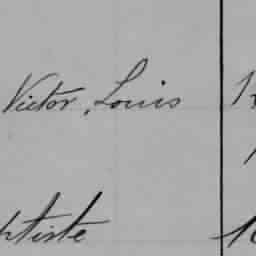 Victor, Louis
ptiste